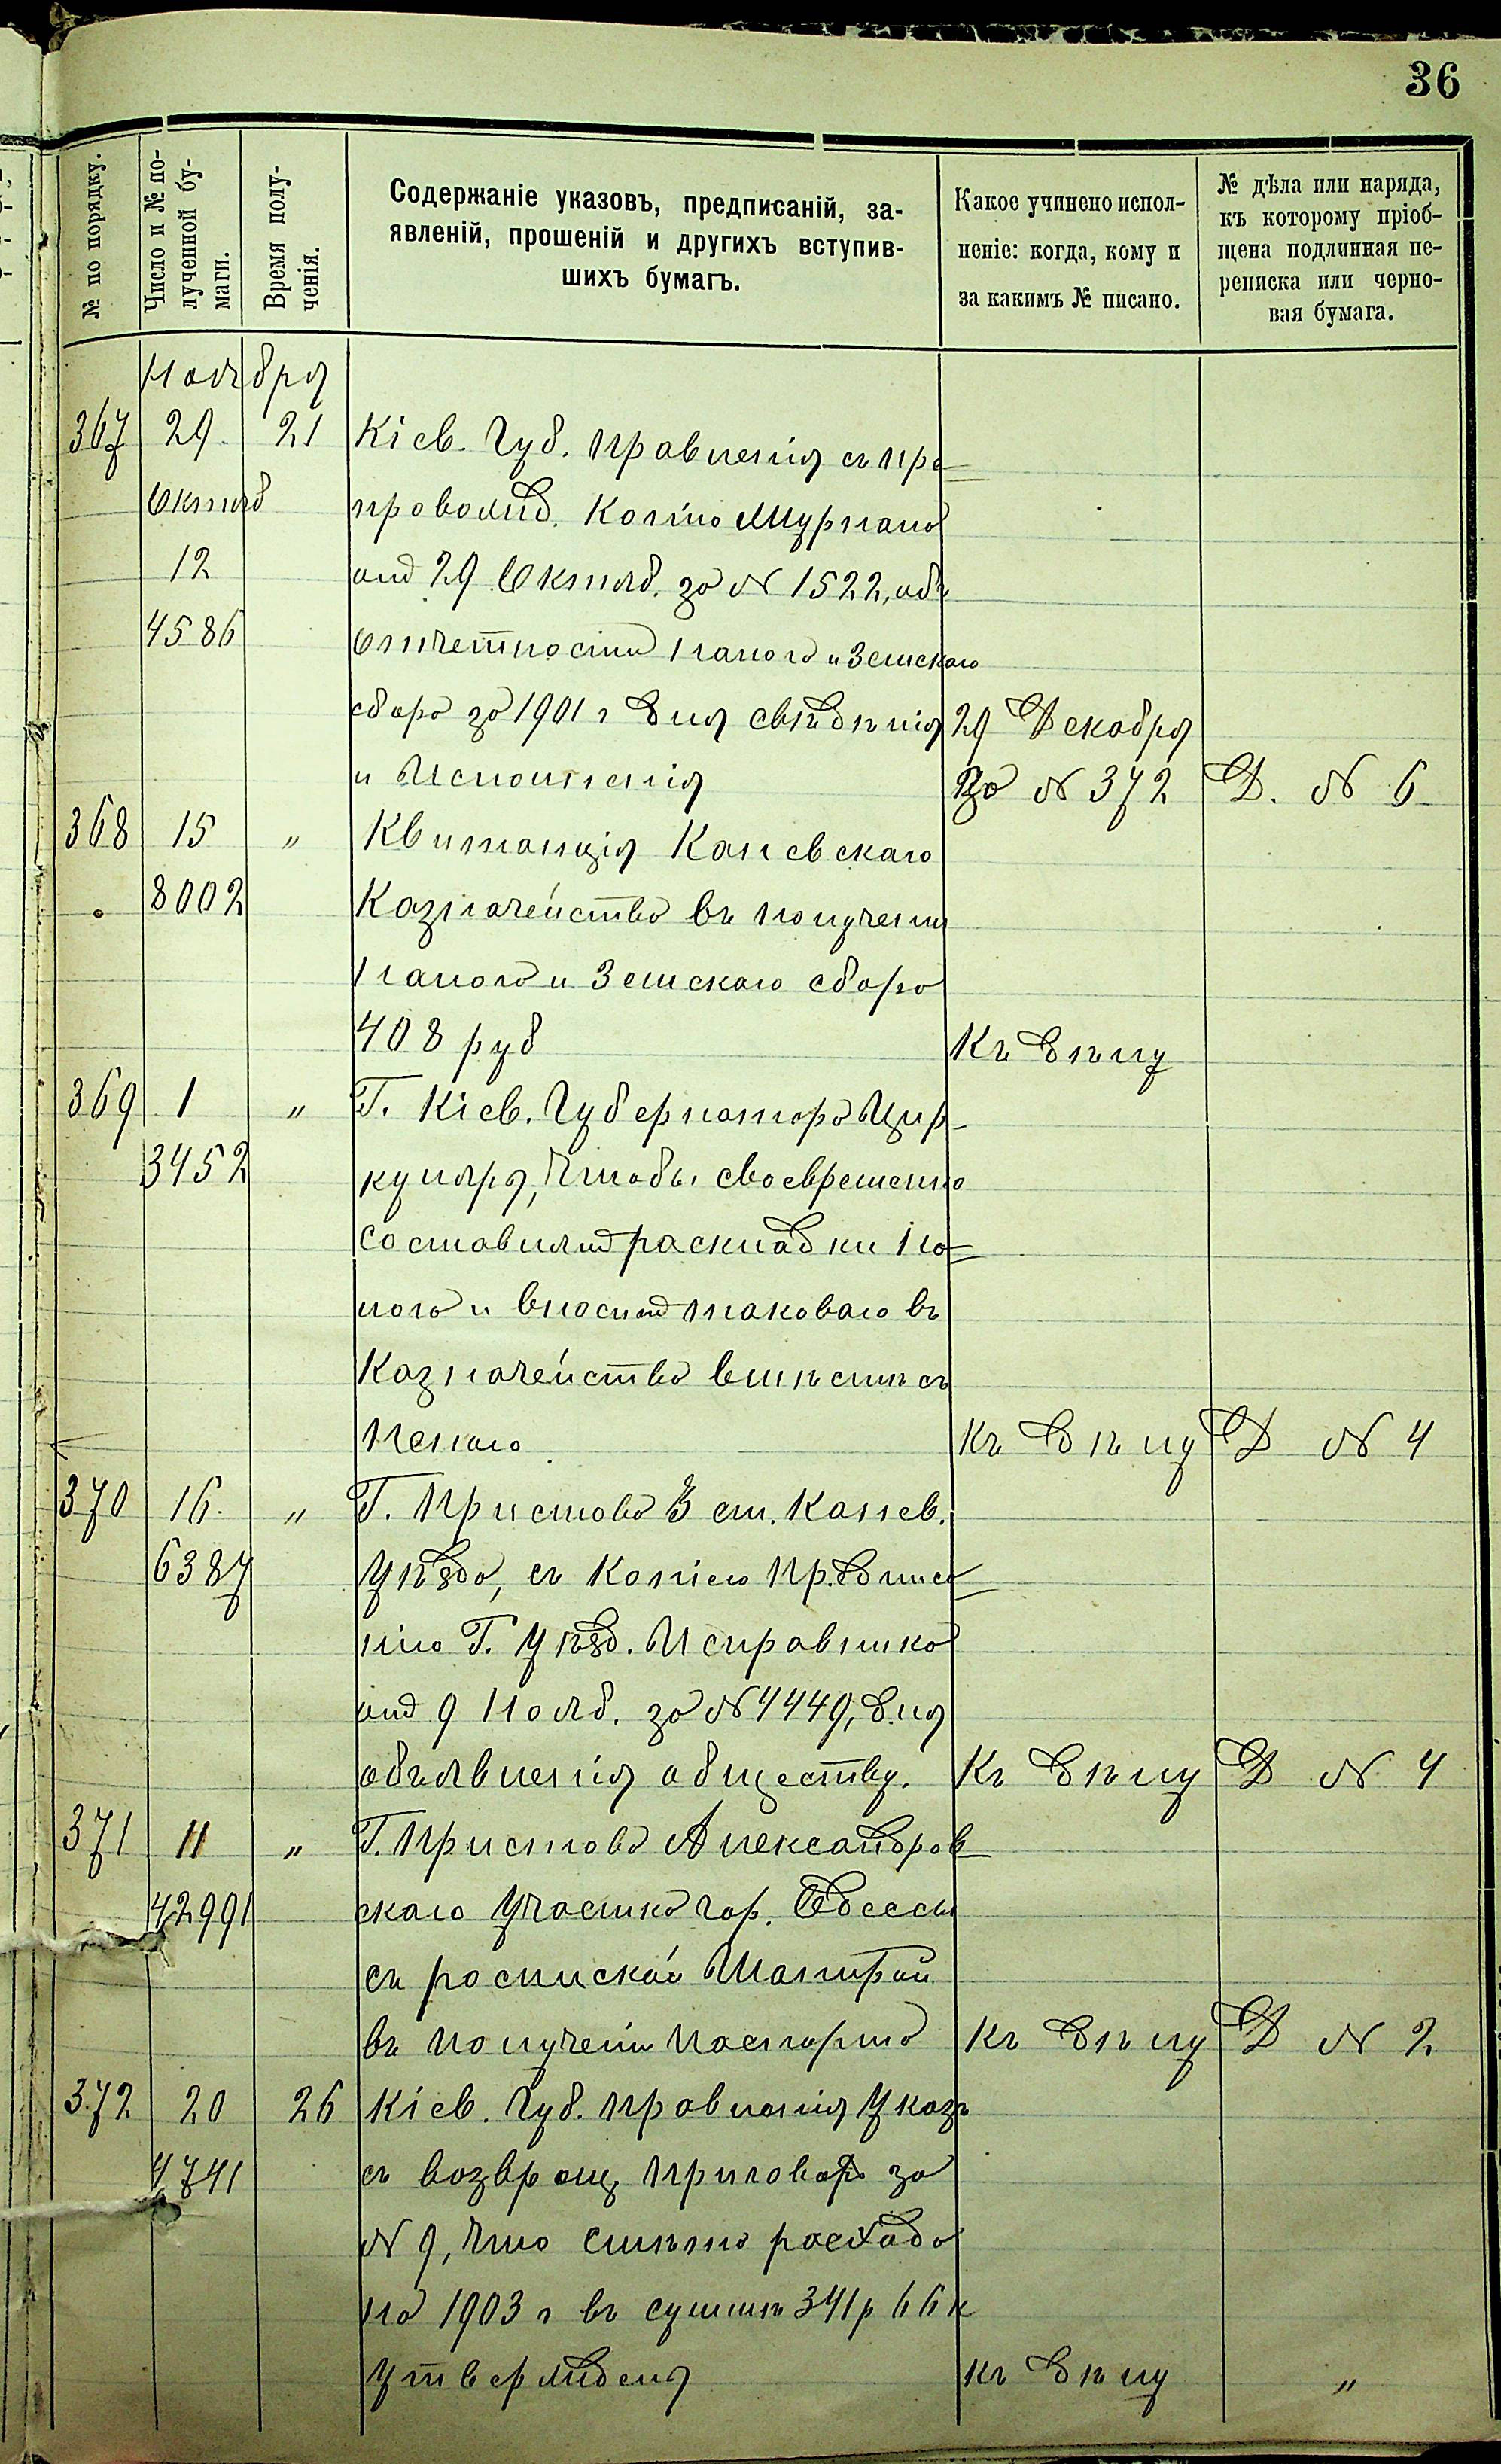 36
№ по порядку.
Число и № по-
лученной бу-
маги.
Время полу-
ченія.
Содержаніе указовъ, предписаній, за-
явленій, прошеній и другихъ вступив-
шихъ бумагъ.
Какое учинено испол-
неніе: когда, кому и
за какимъ № писано.
№ дѣла или наряда,
къ которому пріоб-
щена подлинная пе-
реписка или черно-
вая бумага.
Ноября
367 29 21 Кіев. Губ. Правленія съ пре=
Октяб провожд. Копію Журнала
12 отъ 29 Октяб. за № 1522, объ
4586 отчетности наго и Земскаго
сбора за 1901 г для свѣдѣнія 29 Декабря
и Исполненія За № 372 Д. № 6
368 15 " Квитанція Каневскаго
8002 Казначейства въ получении
наго и Земскаго сбора
408 руб Къ дѣлу
369 1 " Г. Кіев. Губернатора Цир-
3452 куляра, Чтобы своевременно
составлять раскладки
наго и вносить таковаго въ
Казначейство вмѣстѣ съ
Къ дѣлу Д № 4
370 16. " Г. Пристава 3 ст. Канев.
6387 Уѣзда, съ Копіею Предписа=
нію Г. Уѣзд. Исправника
отъ 9 Нояб. за № 4449, для
объявленія обществу. Къ дѣлу Д № 4
371 11 " Г. Пристава Александров
42991 скаго Участка гор. Одессы
съ роспиской
въ Полученіи Паспорта Къ дѣлу Д № 2
372 20 26 Кіев. Губ. Правленія Указъ
4741 съ возвращ Приговора за
№ 9, Что Смѣта расхода
на 1903 г въ суммѣ 341 р 66 к
Утверждена Къ дѣлу "